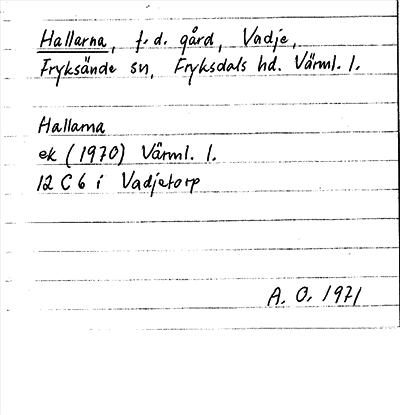 Hallarna, f.d. gård, Vadje,
Fryksände sn, Fryksdals hd. Värml. l.
Hallarna
ek (1970) Värml. l.
12 C 6 i Vadjetorp
A. O. 1971